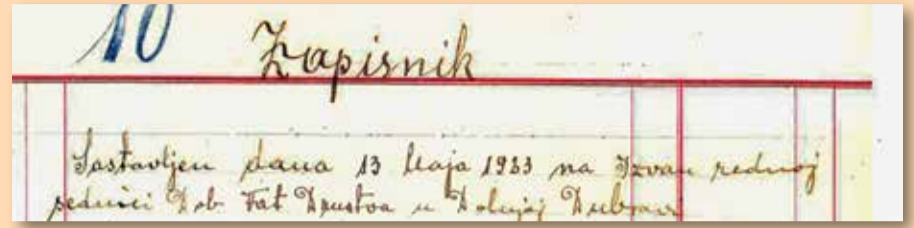 10 Zapisnik
Sastavljen dana 13 Maja 1933 na Izvan rednoj
sednici Dob Vat Društva u Dolnjoj Dubravi